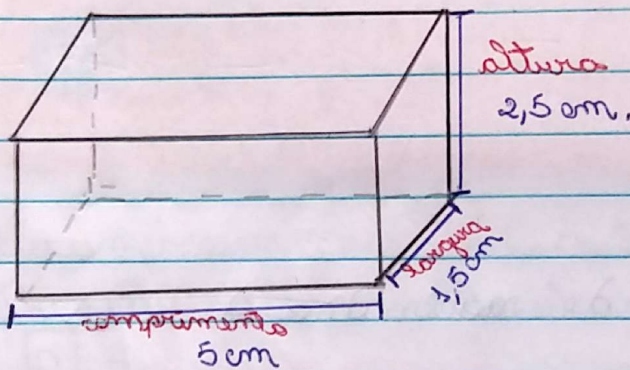 altura
2,5 cm.
largura
1,5cm
comprimento
5 cm